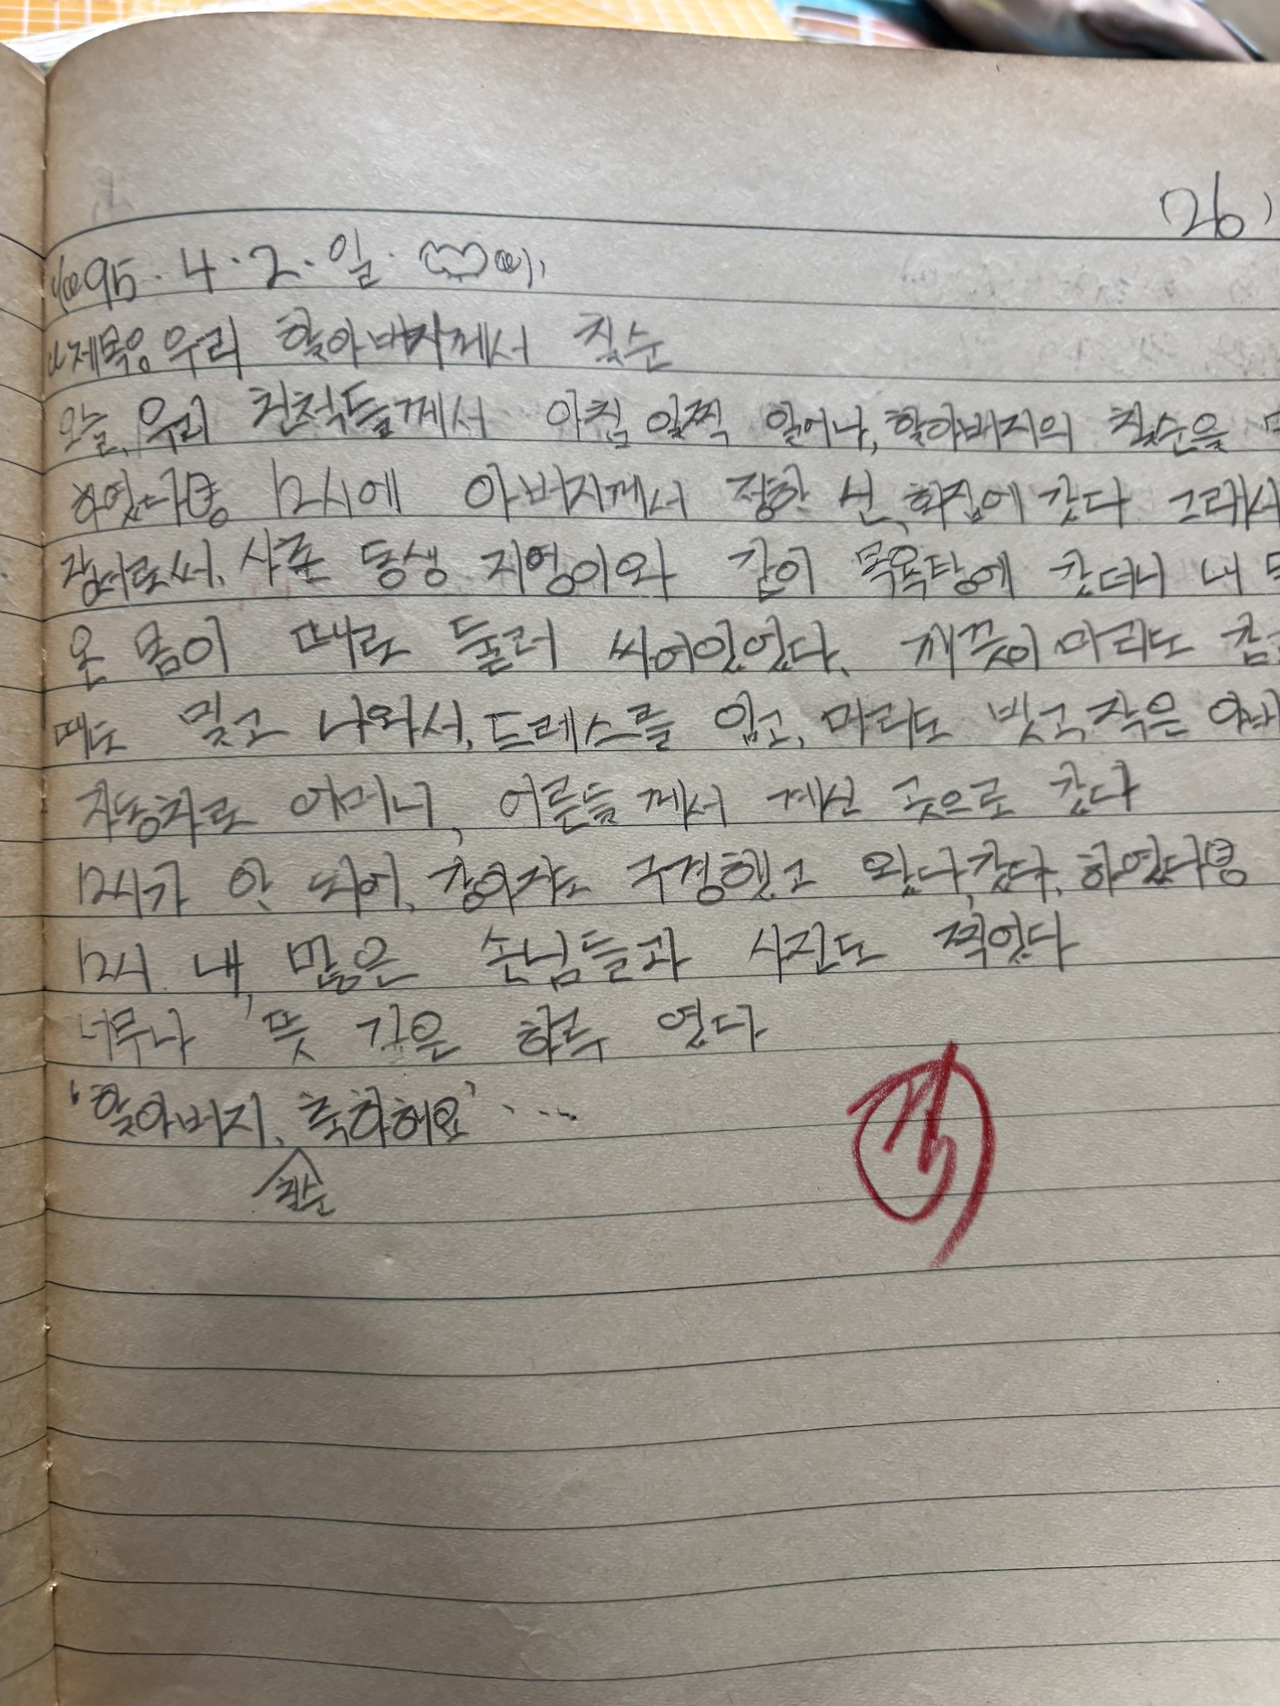 26)
95. 4. 2. 일.
제목: 우리 할아버지께서 칠순
오늘, 우리 친척들께서 아침 일찍 일어나, 할아버지의 칠순을
하였다. 12시에 아버지께서 정한 횟집에 갔다 그래서
사촌 동생 지영이와 같이 목욕탕에 갔더니 내
온 몸이 때로 둘러 싸여있었다. 깨끗이 머리도
때도 밀고 나와서, 드레스를 입고, 머리도 빗고, 작은
자동차로 어머니, 어른들께서 계신 곳으로 갔다
12시가 안 되어, 구경했고 왔다, 갔다, 하였다
12시 내, 많은 손님들과 사진도 찍었다
너무나 뜻 깊은 하루 였다
'할아버지, 축하해요' ...
칠순